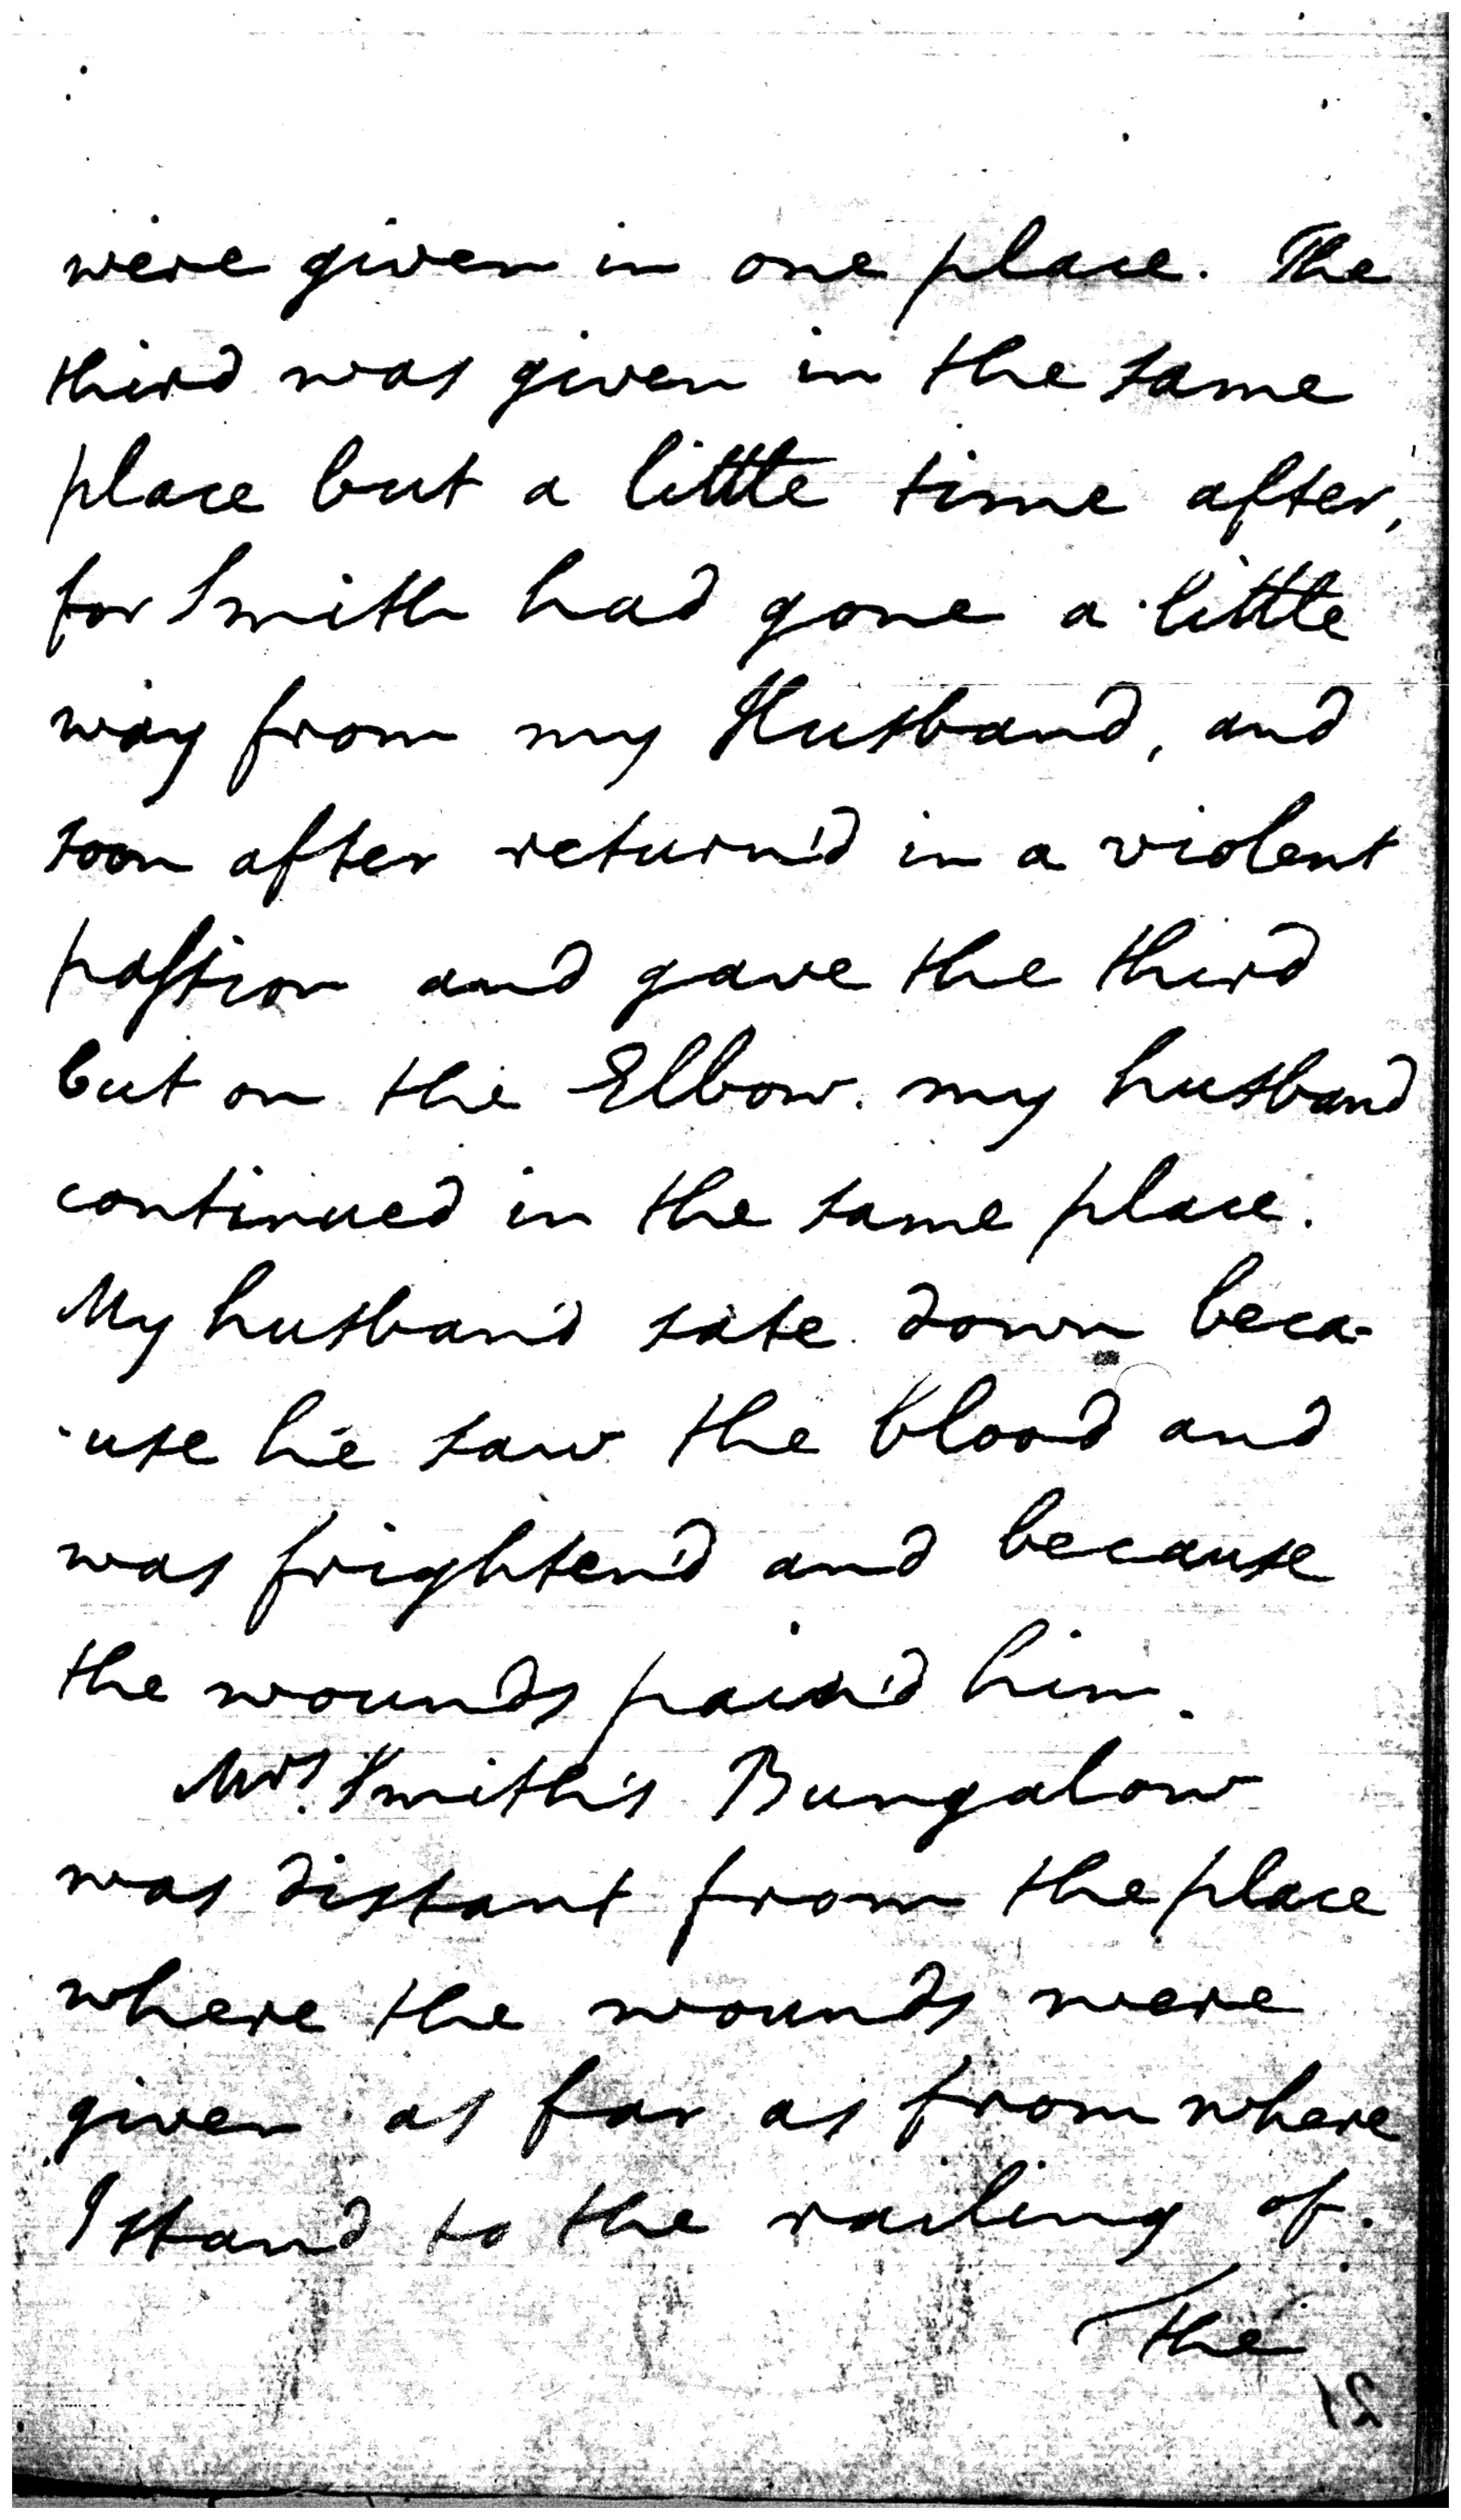 were given in one place. The
third was given in the same
place but a little time after,
for Smith had gone a little
way from my Husband, and
soon after return'd in a violent
passion and gave the third
cut on the Elbow. my husband
continued in the same place.
My husband sate down beca-
-use he saw the blood and
was frighten'd and because
the wounds pain'd him.
Mrs. Smith's Bungalow
was distant from the place
where the wounds were
given as far as from where
I stand to the railing of
the